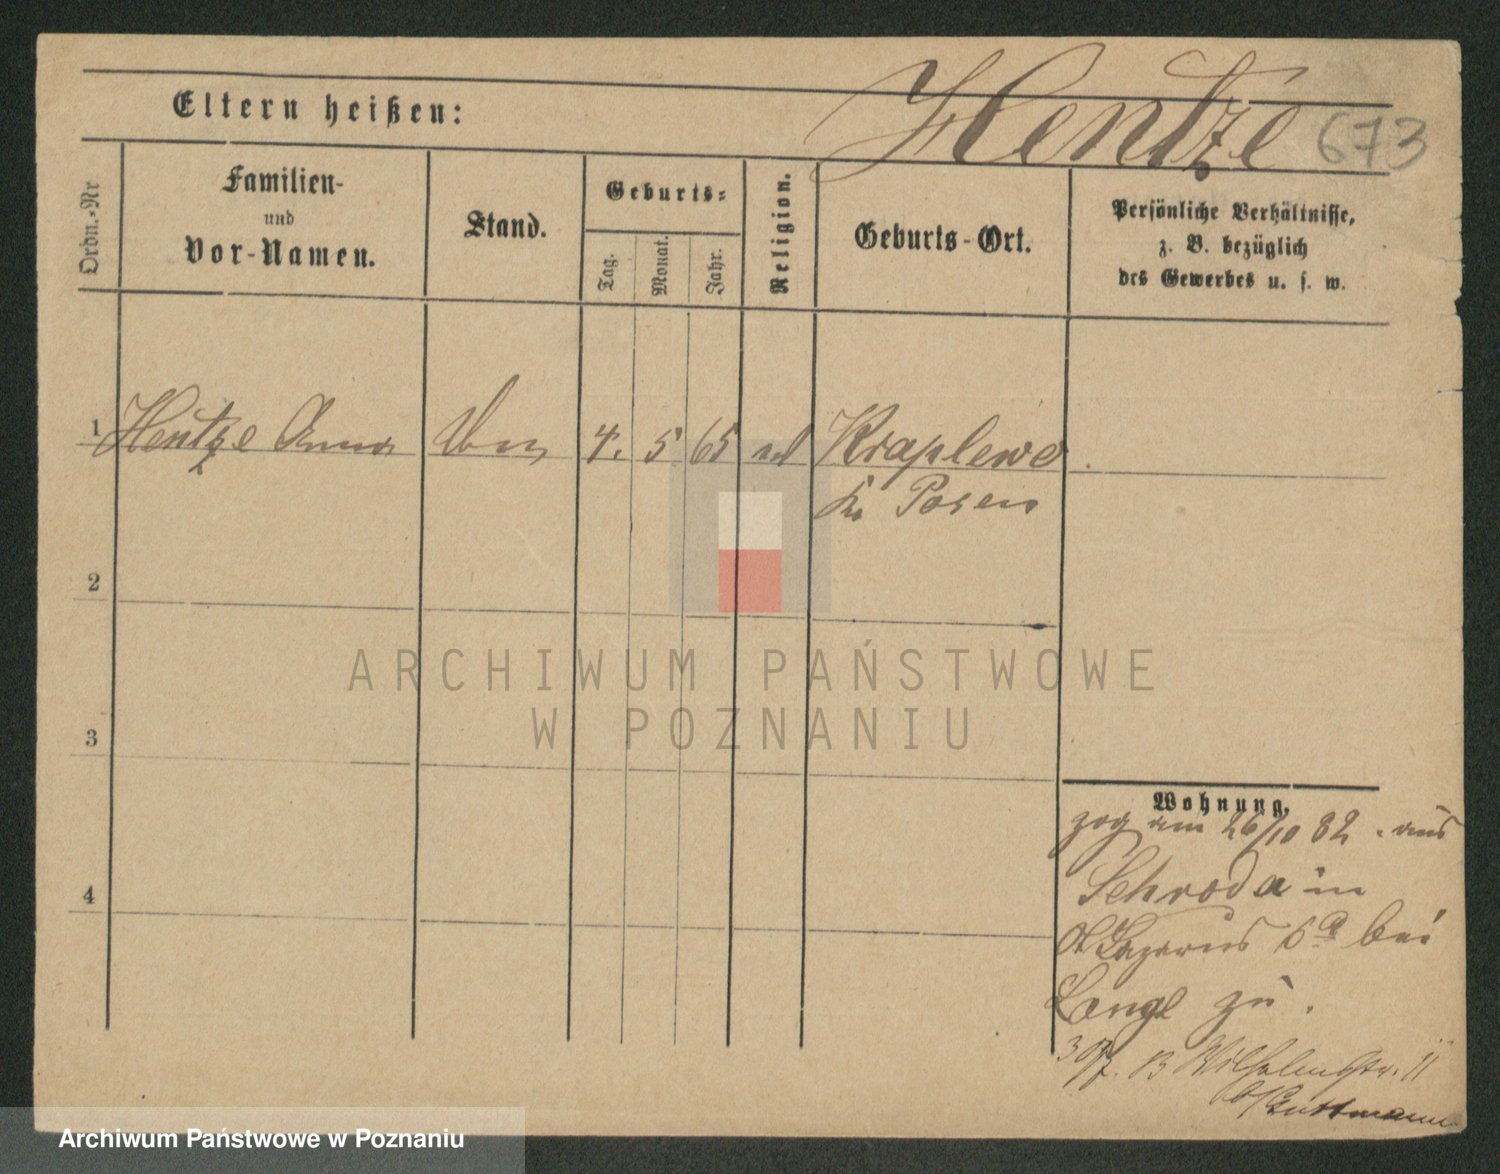 Hentze 673
Eltern heißen:
Ordn.-Nr
Familien-
und
Vor-Namen.
Stand.
Geburts-
Tag.
Monat.
Jahr.
Religion.
Geburts-Ort.
Persönliche Verhältnisse,
z. B. bezüglich
des Gewerbes u. s. w.
1 Hentze Anna 4. 5 65 Kraplewo
Kr Posen
2
3
4
ARCHIWUM PAŃSTWOWE
W POZNANIU
Wohnung,
zog am 26/10 82 aus
Schroda in
St Lazarus 5a bei
Lange zu.
30/7. 83 Wilhelmstr. 11
b/Guttmann
Archiwum Państwowe w Poznaniu